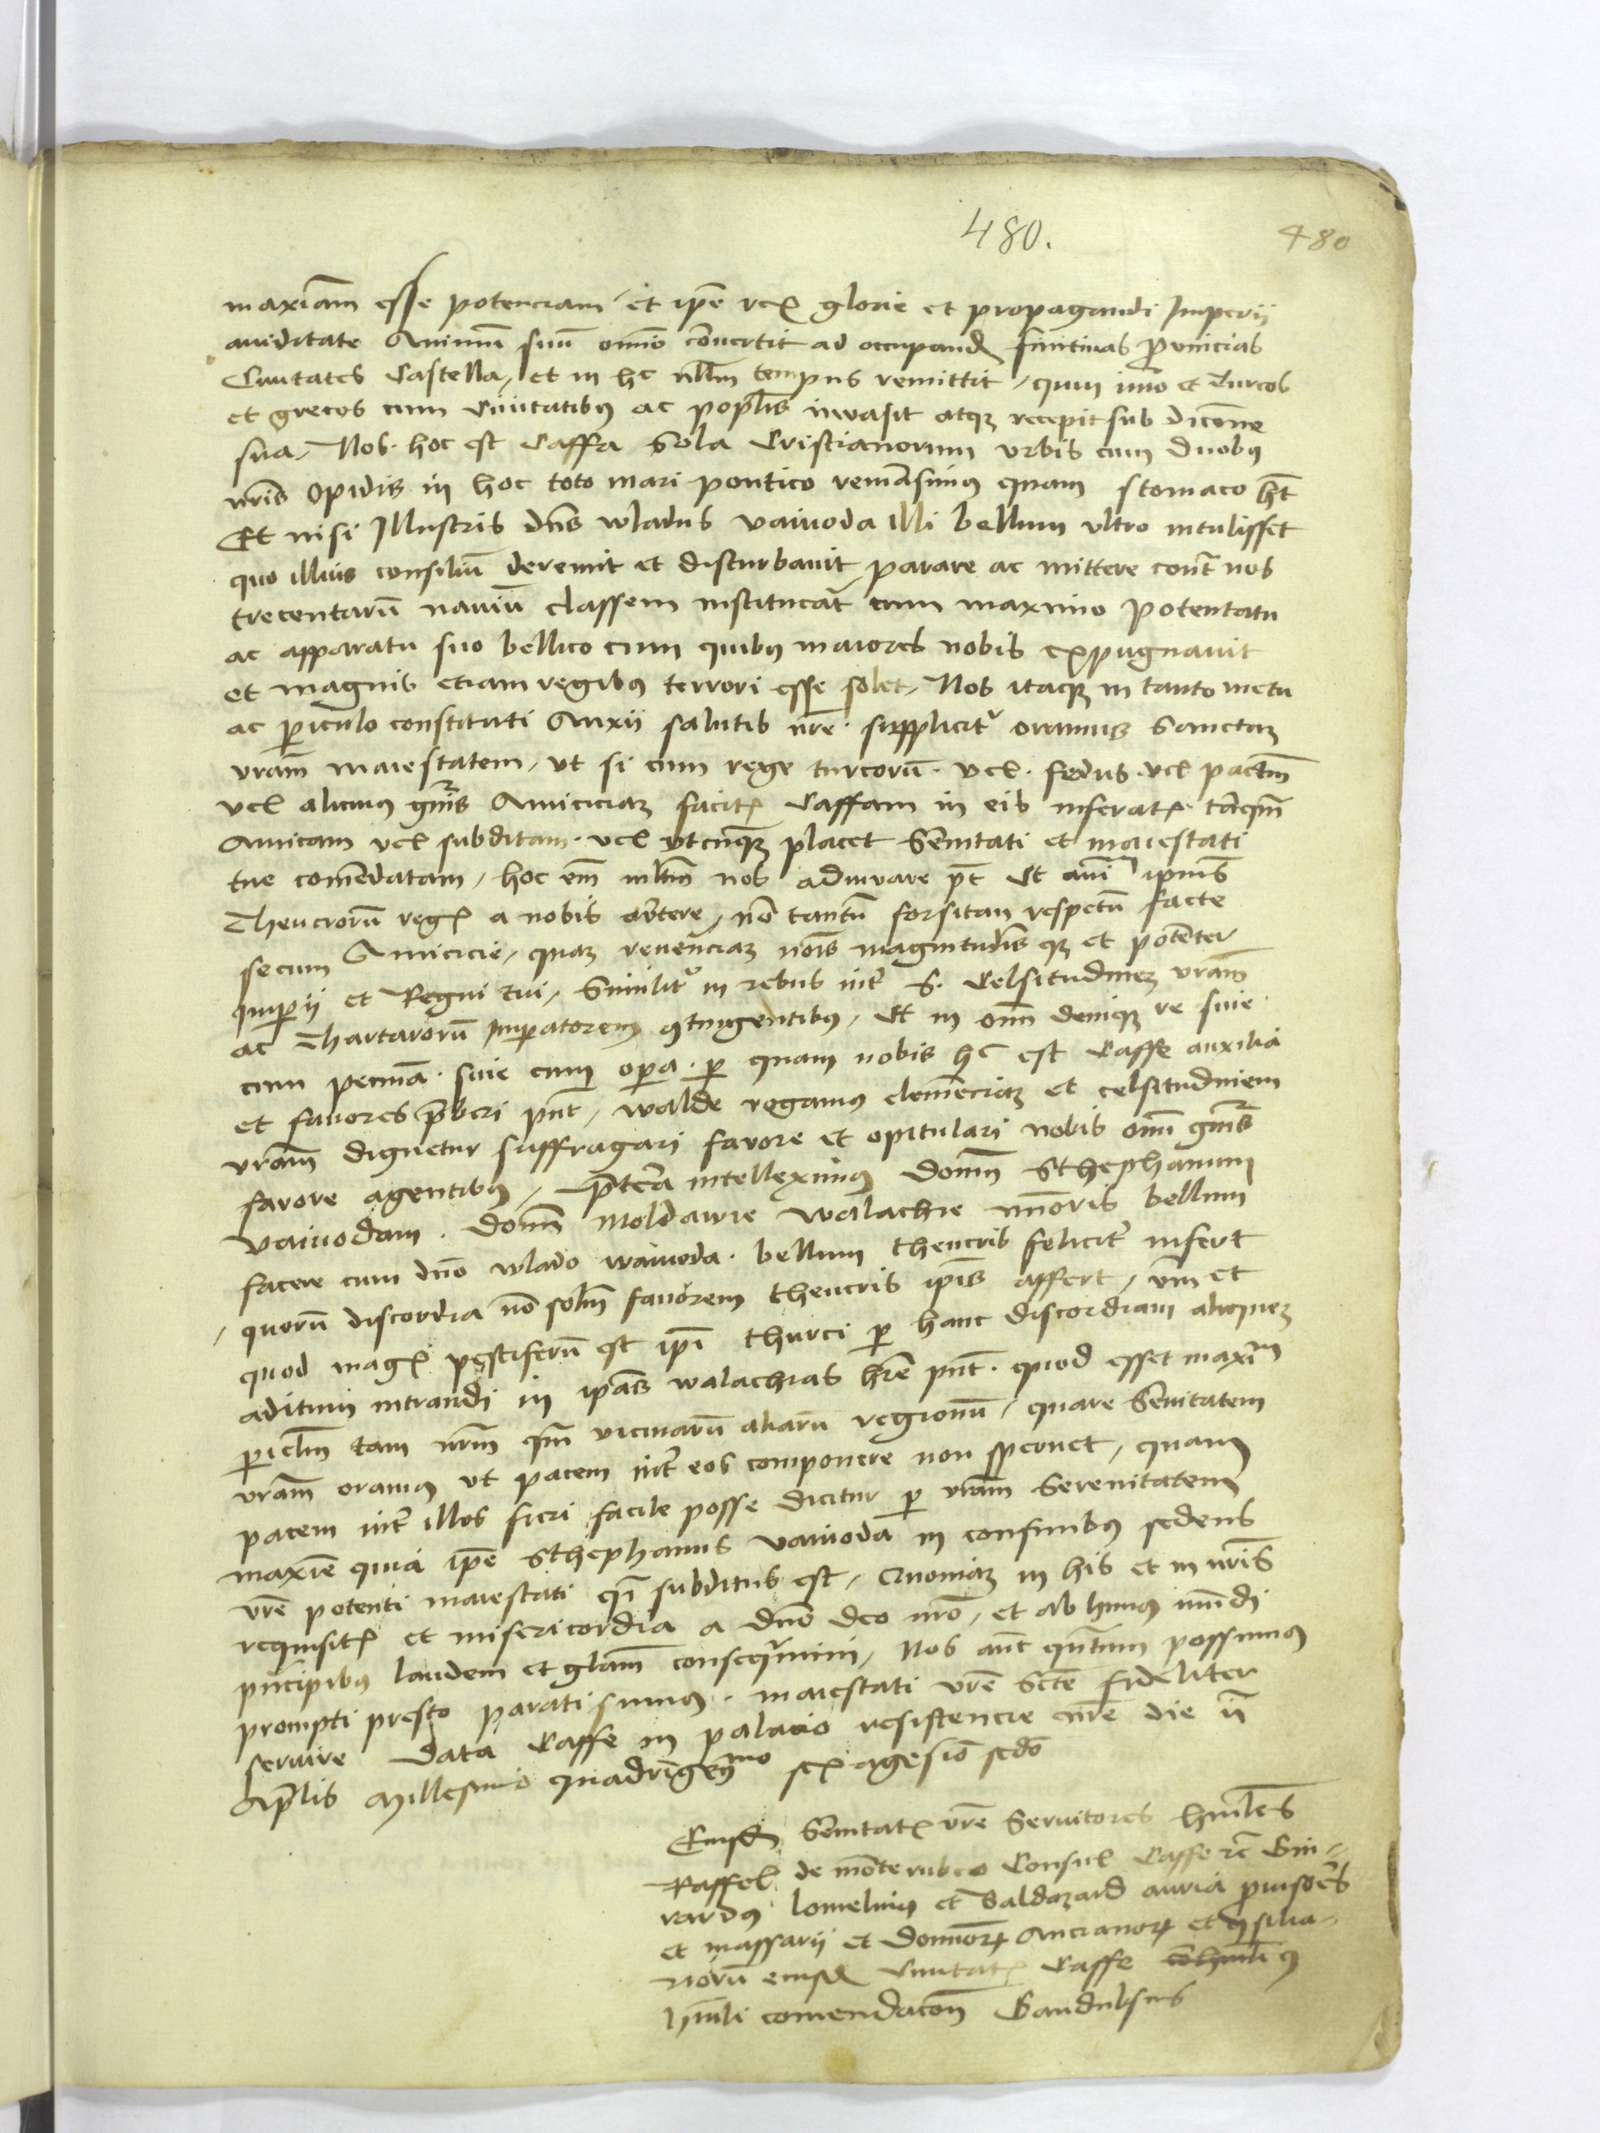 480.
480
maxi͞am esse potenciam et ip͞e rex glorie et propagandi Imperii
auiditate Animu͞ suu͞ om͞io co͞uertit ad occupand͞ finitimas p͞rouincias
Ciuitates Castella, et in hc nll͞m tempus remittit, quin i͞mo et Turcos
et grecos cum Ciuitatibus ac pop͞lis inuasit atque recepit sub dico͞ne
sua, Nos hoc est Caffa Sola Cristianorum urbis cum duobus
nr͞is Opidis in hoc toto mari pontico rema͞simus quam stomaco h͞t
Et nisi Illustris dn͞s wladus vaiuoda illi bellum ultro intulisset
quo illius consiliu͞ deremit et disturbauit parare ac mittere cont͞ nos
trecentaru͞ nauiu͞ classem instituerat cum maximo potentatu
ac apparatu suo bellico cum quibus maiores nobis expugnauit
et magnis etiam regibus terrori esse solet, Nos itaque in tanto metu
ac p͞iculo constituti Anxii salutis nr͞e supplicit͞ oramus Sanctam
vr͞am maiestatem, ut si cum rege turcoru͞ vel fedus vel pactu͞m
vel alicuius gn͞ris Amiciciam facit͞ Caffam in eis inserat͞ ta͞q͞m
Amicam vel subditam vel utcu͞que placet Se͞nitati et maiestati
tue come͞ndatam, hoc em͞ mlt͞m nos adiuuare p͞t Et ipius
Theucroru͞ reg͞ a nobis no͞ tantu͞ forsitan respectu͞ facte
secum Amicicie, quam reuere͞nciam no͞is magnitudi͞sque et potenter
Imp͞ii et Regni tui, Similit͞ in rebus int͞ S. Celsitudinem vr͞am
ac Thartaroru͞ Imp͞atorem co͞tingentibus, Et in om͞i denique re siue
cum pecunia siue cum op͞a p͞ quam nobis hc est Caffe auxilia
et fauores p͞beri pn͞t, walde rogamus cleme͞nciam et celsitudinem
vr͞am dignetur suffragari fauore et opitulari nobis om͞i gn͞ris
fauore agentibus, P͞terea intelleximus Dom͞ Sthephanum
vaiuodam Dom͞ Moldauie walachie mi͞noris bellum
facere cum dn͞o wlado waiuoda bellum theucris felicit͞ infert
quoru͞ discordia no͞ solu͞m fauorem theucris ip͞is affert, vm͞ et
quod mag͞ pestiferu͞ est ip͞i thurci p͞ hanc discordiam aliquem
aditum intrandi in ip͞as walachias h͞re pn͞t quod esset maxi͞m
p͞icl͞m tam nr͞m q͞m vicinaru͞ aliaru͞ regionu͞, quare Se͞nitatem
vr͞am oramus ut pacem int͞ eos componere non spernet, quam
pacem int͞ illos fieri facile posse dicitur p͞ vr͞am Serenitatem
maxi͞e quia ip͞e Sthephanus vaiuoda in confinibus sedens
vr͞e potenti maiestati q͞i subditus est, Quoniam in his et in nr͞is
requisit͞ et misericordia a dn͞o deo nr͞o, et ab huius mu͞ndi
pri͞ncipibus laudem et gl͞am consequemini, Nos aut͞ qu͞ntum possumus
prompti presto parati sumus maiestati vr͞e Sct͞e fideliter
seruire Data Caffe in palacio resistencie nr͞e die ii͞
Ap͞lis Millesimo quadringen͞mo sexagesi͞o s͞cdo
Eiusd͞ Se͞nitat͞ vr͞e Seruitores hu͞miles
Raffel de mo͞terubeo Consul Caffe rc͞ Gui-
rardus lomelinus et Baldazard auria p͞uisores
et massarii et Domi͞nor͞ Ancianor͞ et co͞silia-
rioru͞ eiusd͞ Ciuitat͞ Caffe
Hu͞mili come͞ndaco͞n Gandulfus